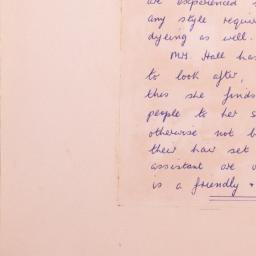 are experienced
any style requi
dyeing as well.
Mrs. Hall has
to look after,
this she finds
people to her s
otherwise not b
their hair set
assistant are v
is a friendly +